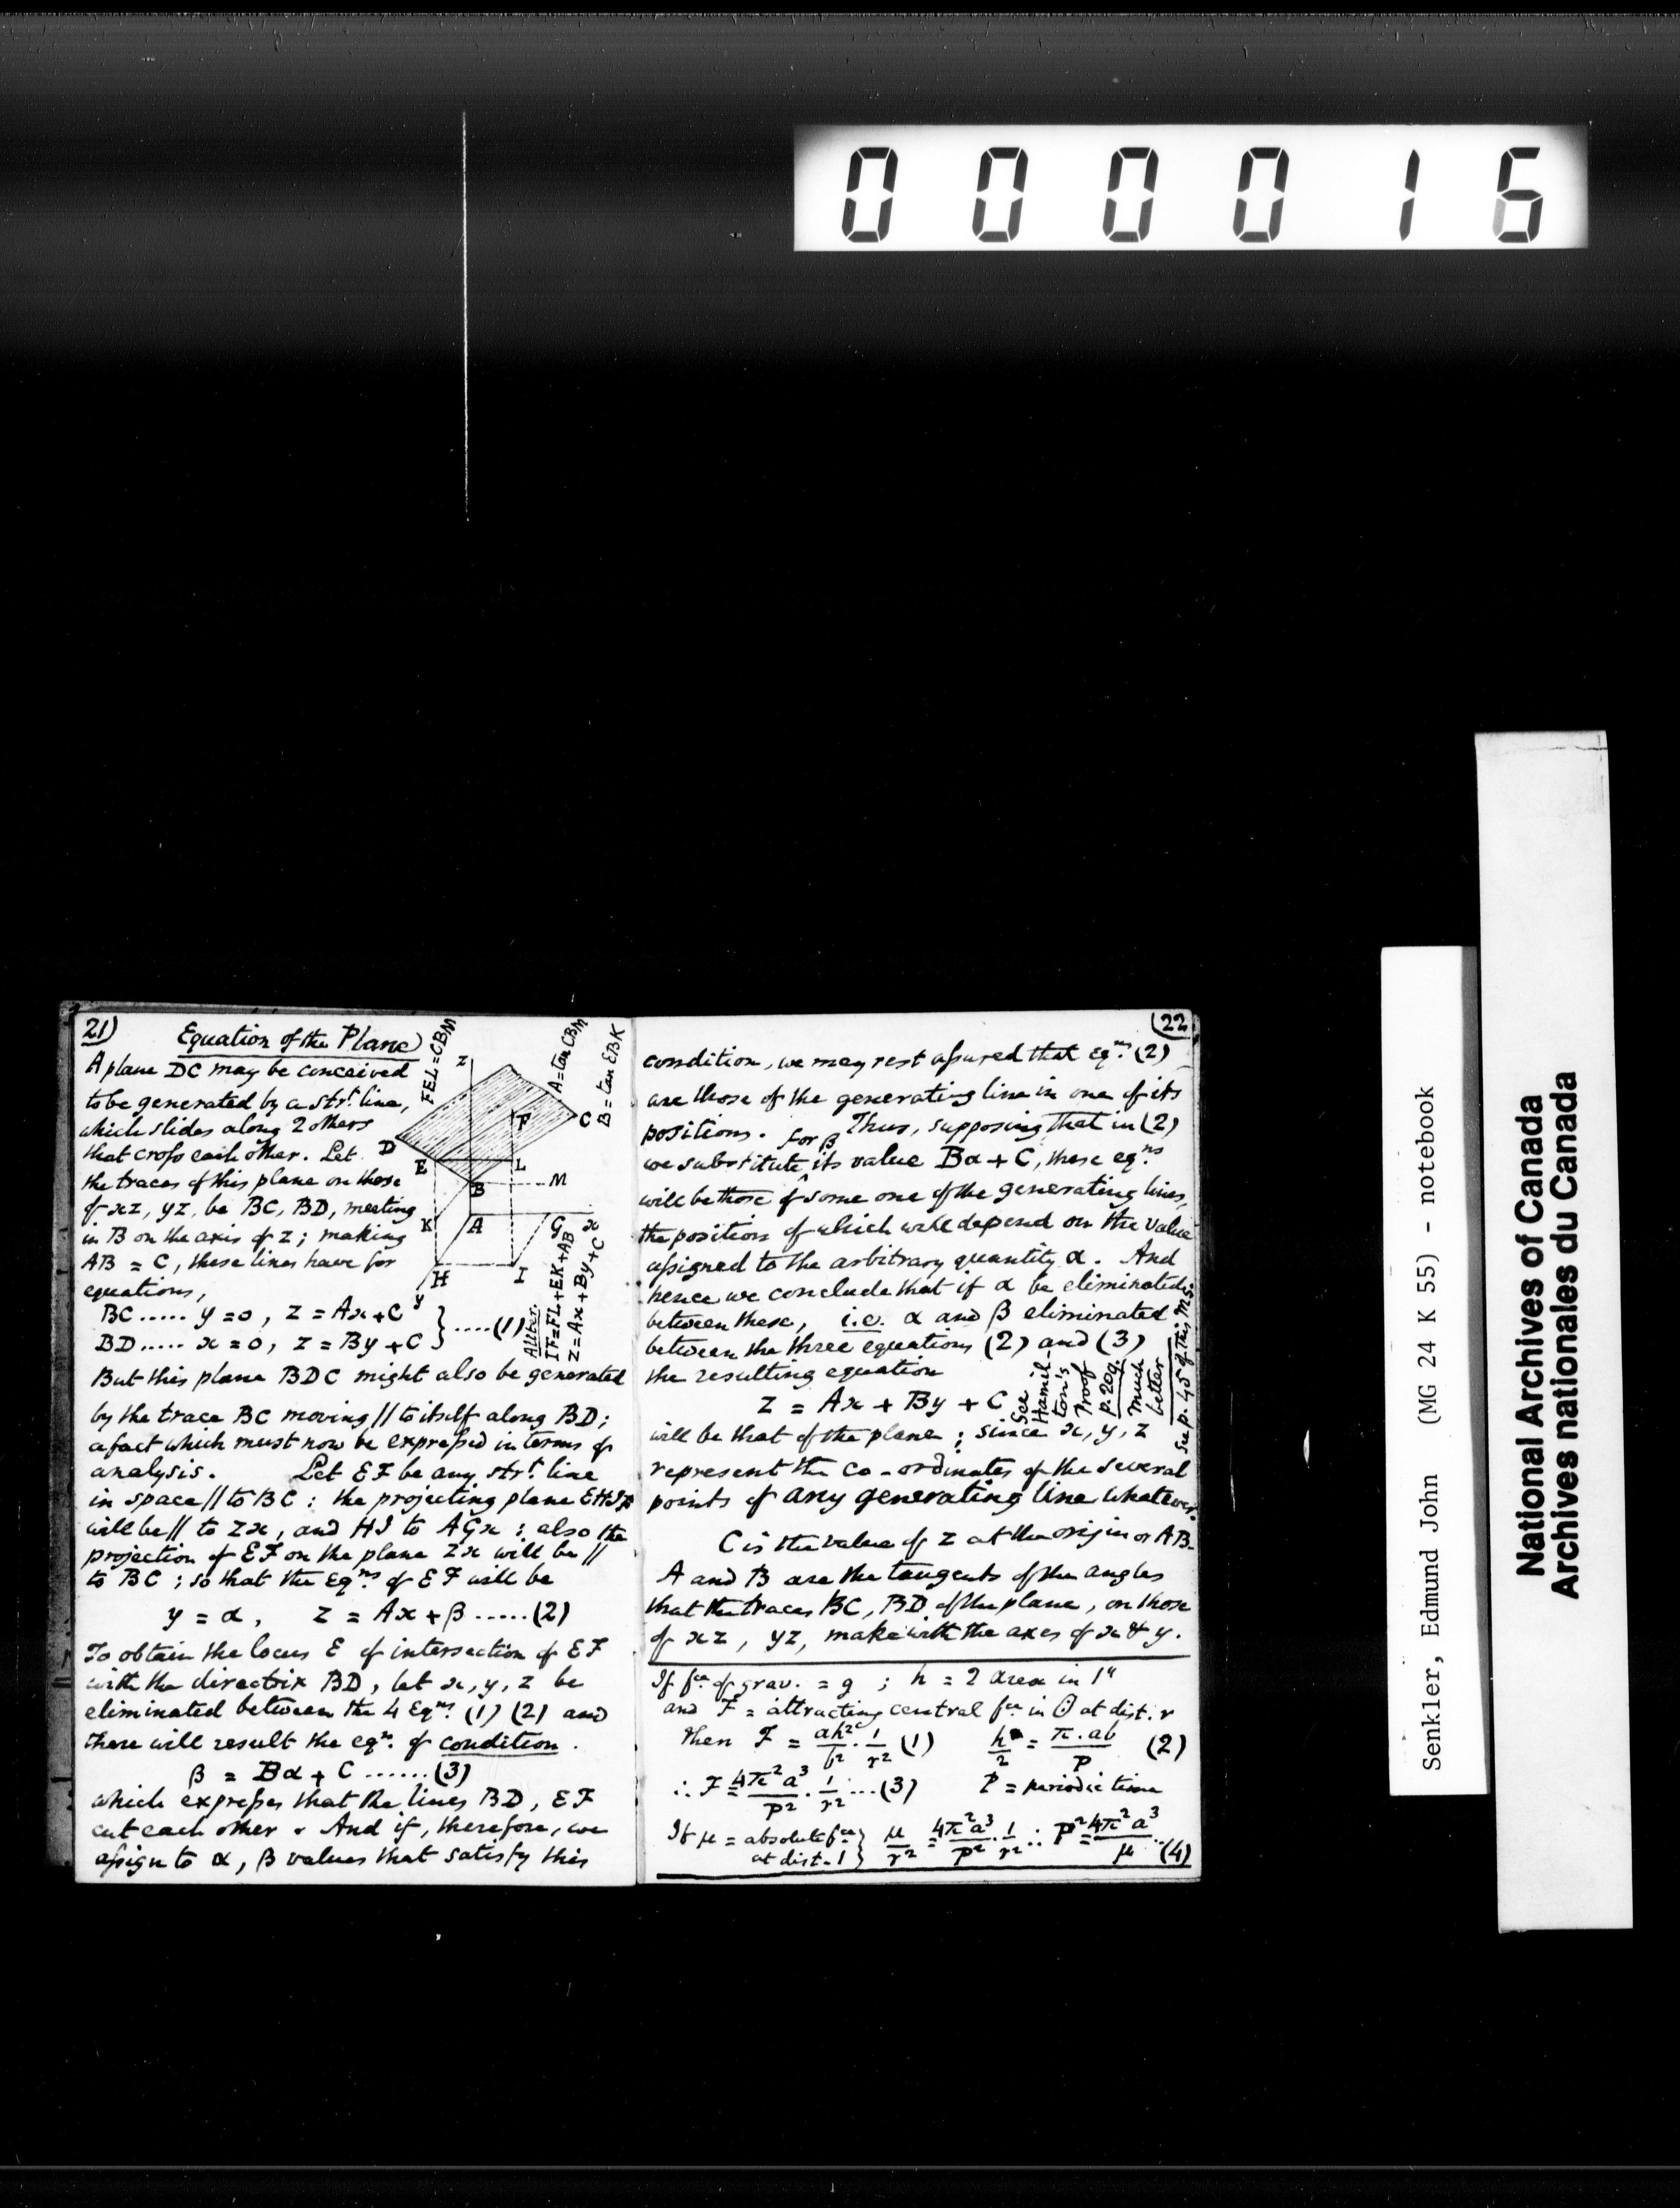 000015
21)
Equation of the Plane
A plane DC may be conceived
to be generated by a strt. line,
which slides along 2 others
that cross each other. Let
the traces of this plane on those
of xz, yz, be BC, BD, meeting
in B on the axis of z; making
AB = C, these lines have for
equations,
BC ..... y = 0, z = Ax + C
BD ..... x = 0, z = By + C } ....(1)
FEL = CBM
A = tan CBM
B = tan EBK
z
D
F
C
E
L
B
M
K
A
G
x
H
I
y
Aliter.
IF = FL + EK + AB
z = Ax + By + C
But this plane BDC might also be generated
by the trace BC moving // to itself along BD;
a fact which must now be expressed in terms of
analysis. Let EF be any strt. line
in space // to BC: the projecting plane EHIF
will be // to zx, and HI to AGx; also the
projection of EF on the plane zx will be //
to BC; so that the Eqns. of EF will be
y = α, z = Ax + β .....(2)
To obtain the locus E of intersection of EF
with the directrix BD, let x, y, z be
eliminated between the 4 Eqns. (1) (2) and
there will result the eqn. of condition.
β = Bα + C ......(3)
which expresses that the lines BD, EF
cut each other. And if, therefore, we
assign to α, β values that satisfy this
(22
condition, we may rest assured that eqns. (2)
are those of the generating line in one of its
positions. Thus, supposing that in (2)
for β
we substitute ^ its value Bα + C, these eqns
will be those of some one of the generating lines,
the position of which will depend on the value
assigned to the arbitrary quantity α. And
hence we conclude that if α be eliminated
between these, i.e. α and β eliminated
between the three equations (2) and (3)
the resulting equation
z = Ax + By + C
will be that of the plane; since x, y, z
See
Hamil-
ton's
Proof
p. 209.
much
better
See p. 45 of this MS.
represent the co-ordinates of the several
points of any generating line whatever.
C is the value of z at the origin or AB.
A and B are the tangents of the angles
that the traces BC, BD of the plane, on those
of xz, yz, make with the axes of x & y.
If fce of grav. = g ; h = 2 area in 1"
and F = attracting central fce in ʘ at dist. r
Then F = ah²/b² . 1/r² (1) h/2 = π.ab/P (2)
∴ F = 4π²a³/P² . 1/r² ...(3) P = periodic time
If μ = absolute fce at dist. 1 } μ/r² = 4π²a³/P² . 1/r² ∴ P² = 4π²a³/μ ..(4)
Senkler, Edmund John (MG 24 K 55) - notebook
National Archives of Canada
Archives nationales du Canada